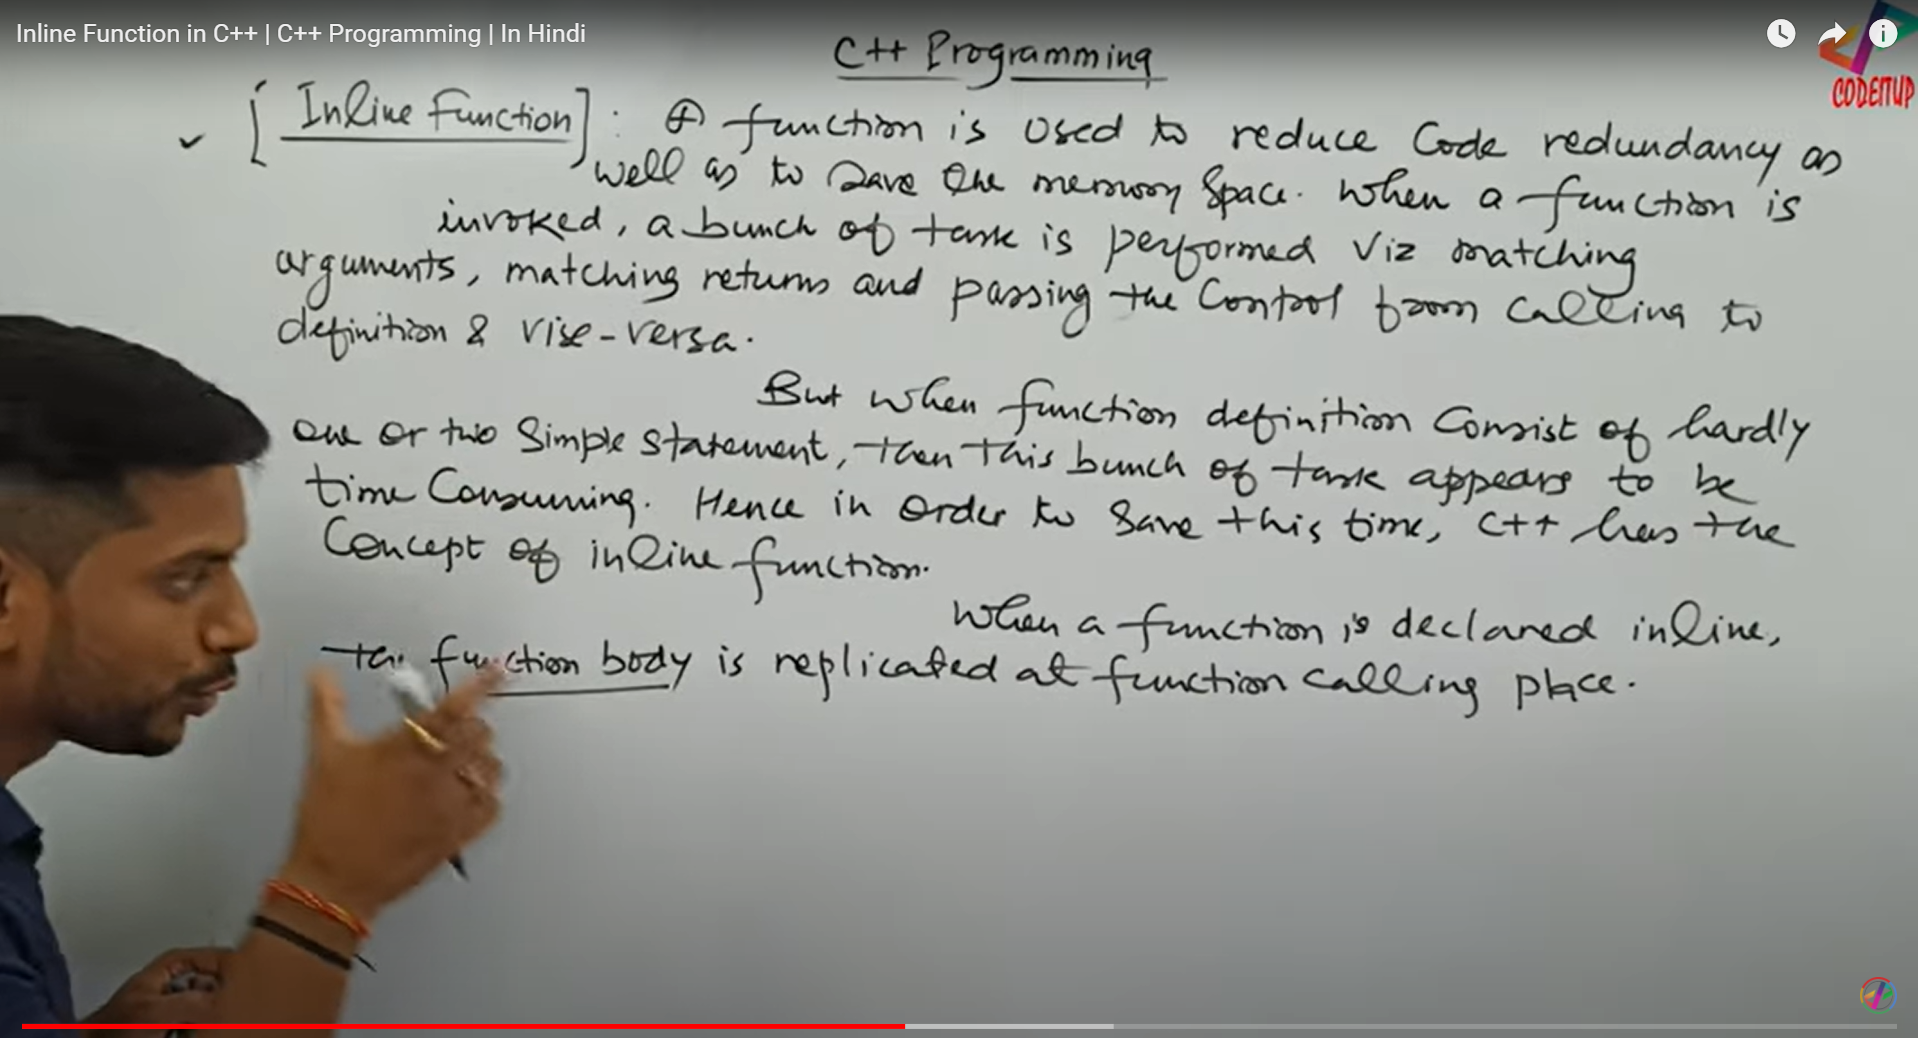 Inline Function in C++ | C++ Programming | In Hindi
C++ Programming
CODEITUP
[Inline Function] : A function is used to reduce Code redundancy as
well as to save the memory space. When a function is
invoked, a bunch of task is performed viz matching
arguments, matching returns and passing the control from calling to
definition & vise-versa.
But when function definition consist of hardly
one or two simple statement, then this bunch of task appears to be
time consuming. Hence in order to save this time, C++ has the
concept of inline function.
When a function is declared inline,
the function body is replicated at function calling place.